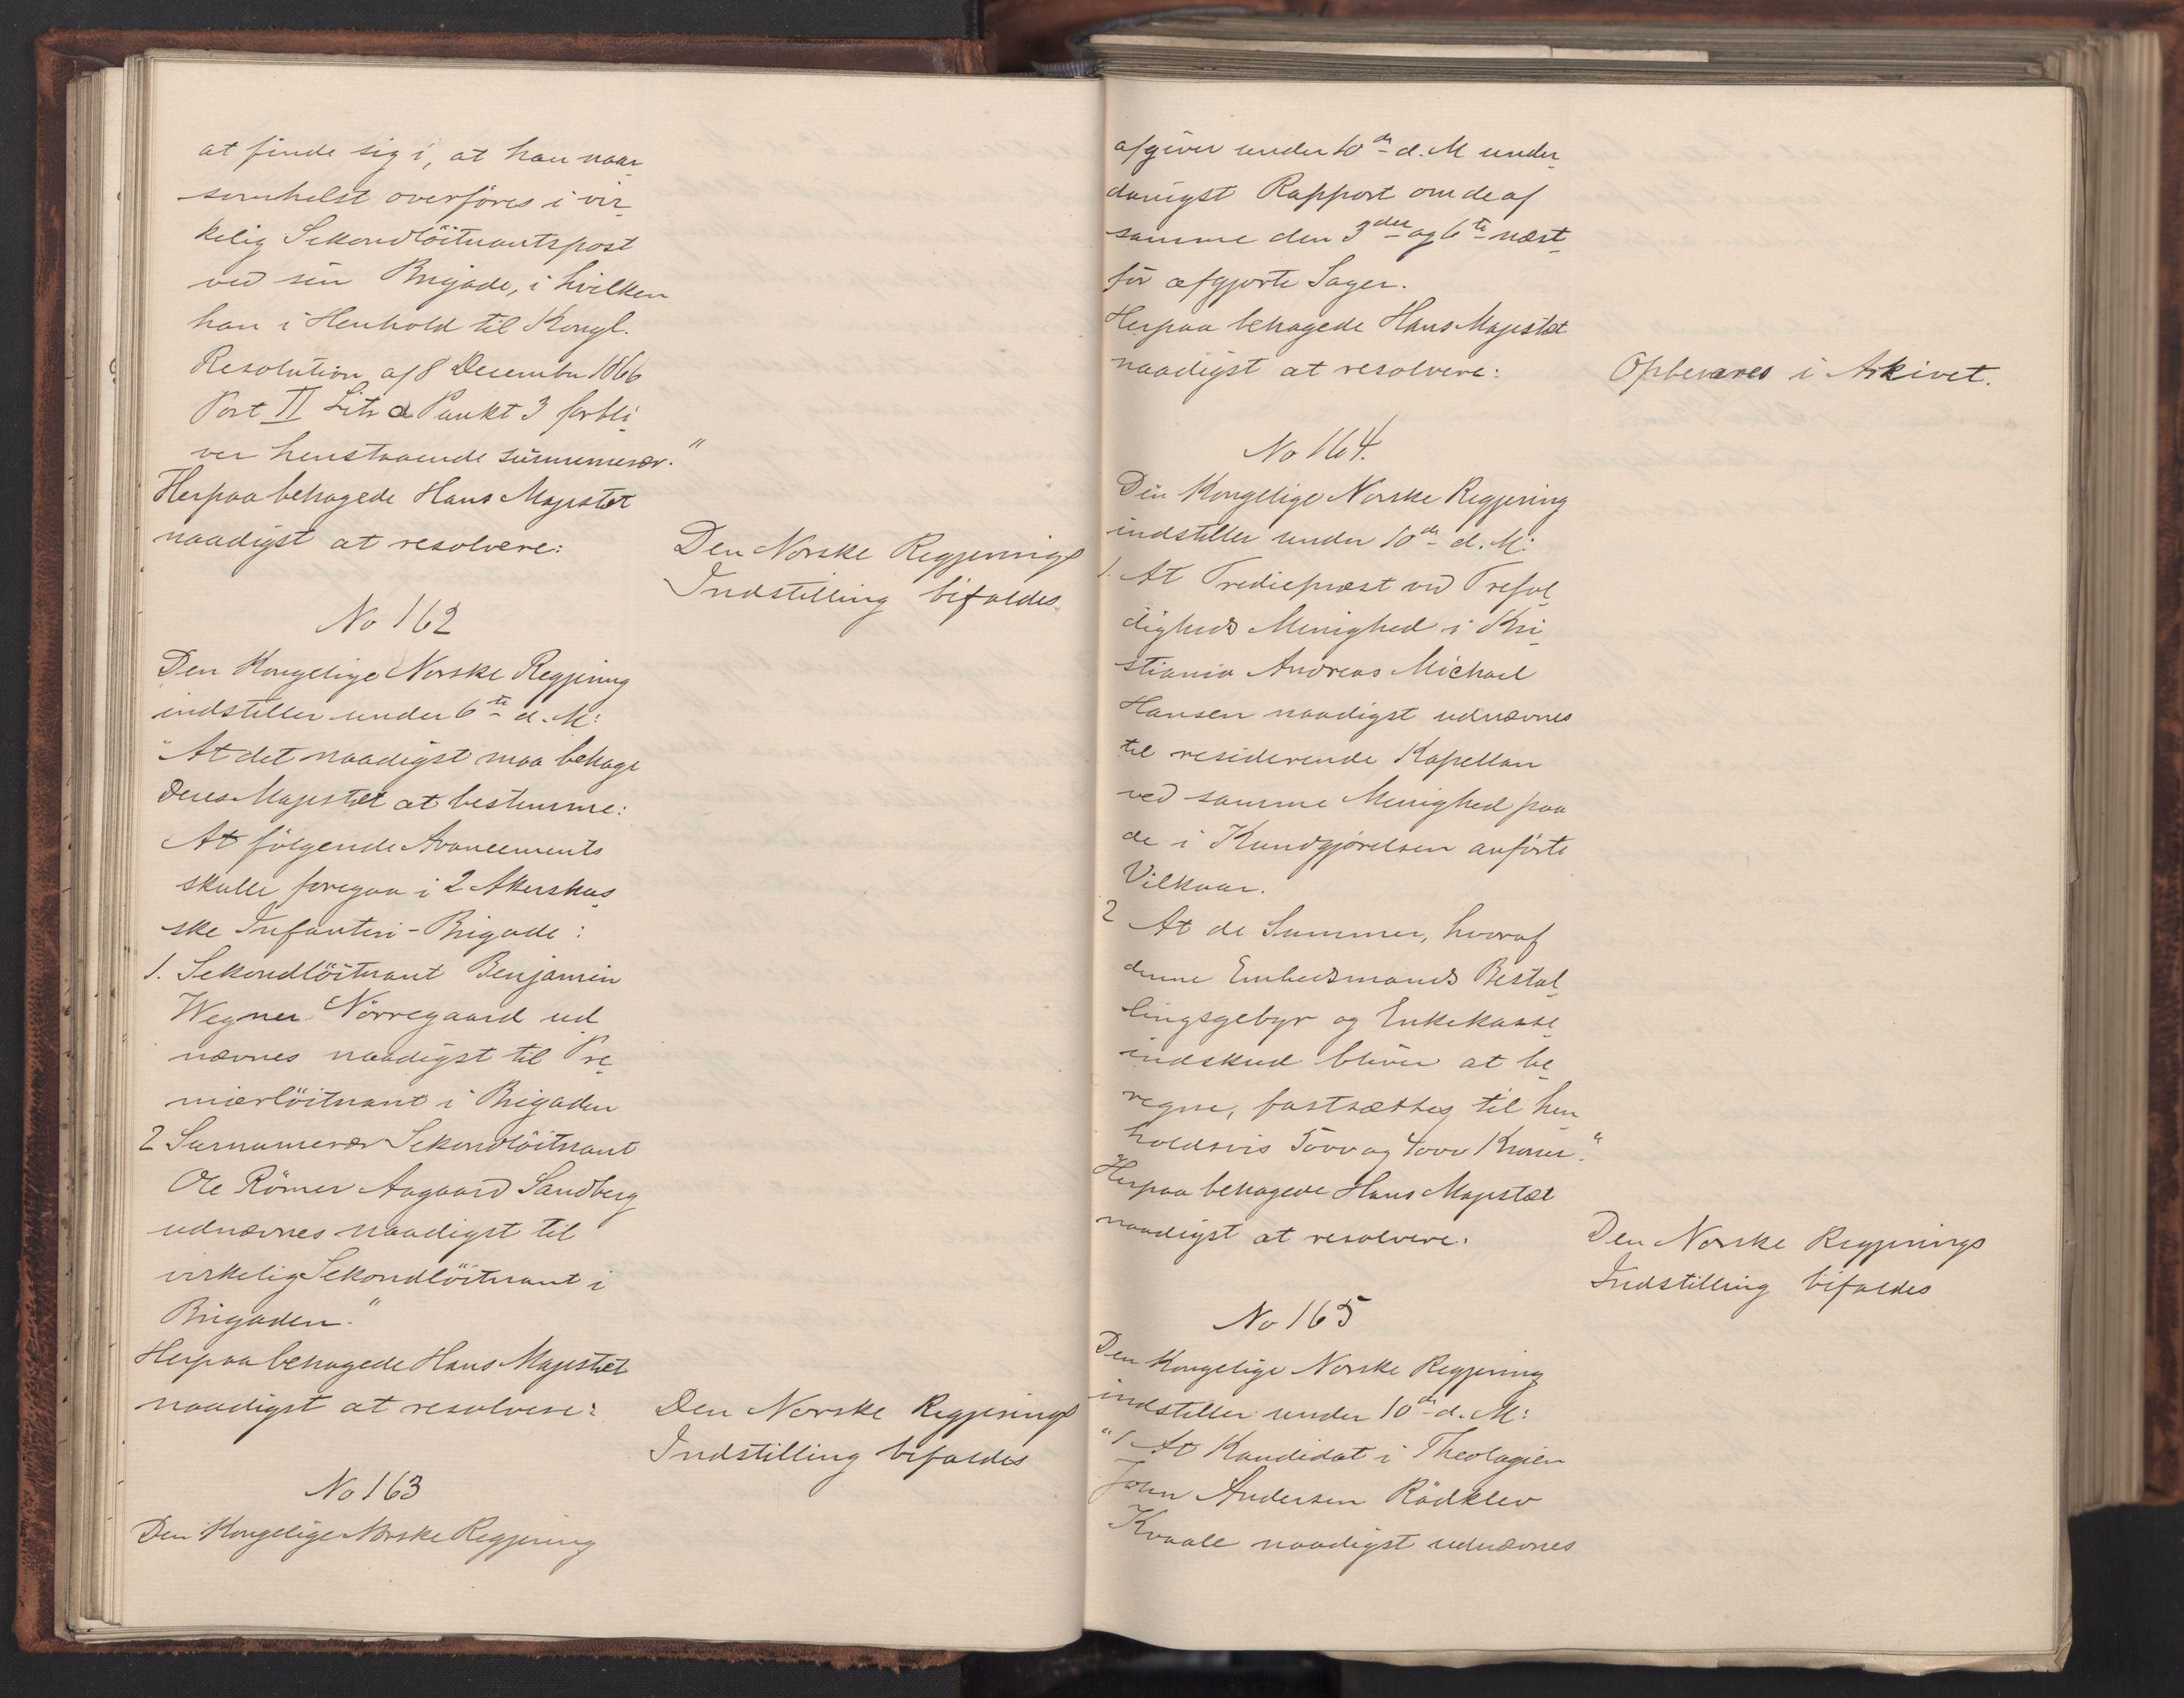 at finde sig i, at han naar
somhelst overføres i vir
kelig Sekondlöitnantspost
ved sin Brigade, i hvilken
han i Henhold til Kongl.
Resolution af 8 December 1866
Post II Litr a Punkt 3 forbli
ver henstaaende surnumerær."
Herpaa behagede Hans Majestæt
naadigst at resolvere:
Den Norske Regjerings
Indstilling bifaldes.
No 162
Den Kongelige Norske Regjering
indstiller under 6te d. M:
"At det naadigst maa behage
Deres Majestæt at bestemme:
At følgende Avancements
skulle foregaa i 2 Akershus
ske Infanteri-Brigade:
1. Sekondlöitnant Benjamin
Wegner Nörregaard ud
nævnes naadigst til Pre
mierlöitnant i Brigaden
2 Surnumerær Sekondlöitnant
Ole Römer Aagaard Sandberg
udnævnes naadigst til
virkelig Sekondlöitnant i
Brigaden."
Herpaa behagede Hans Majestæt
naadigst at resolvere:
Den Norske Regjerings
Indstilling bifaldes
No 163
Den Kongelige Norske Regjering
afgiver under 10de d. M under
danigst Rapport om de af
samme den 3die og 6te næst
før afgjorte Sager.
Herpaa behagede Hans Majestæt
naadigst at resolvere:
Opbevares i Arkivet.
No 164.
Den Kongelige Norske Regjering
indstiller under 10de d. M:
1. At Trediepræst ved Trefol
digheds Menighed i Kri
stiania Andreas Michael
Hansen naadigst udnævnes
til residerende Kapellan
ved samme Menighed paa
de i Kundgjørelsen anførte
Vilkaar.
2 At de Summer, hvoraf
denne Embedsmands Bestal
lingsgebyr og Enkekasse
indskud bliver at be
regne, fastsættes til hen
holdsvis 5000 og 4000 Kroner."
Herpaa behagede Hans Majestæt
naadigst at resolvere:
Den Norske Regjerings
Indstilling bifaldes
No 165
Den Kongelige Norske Regjering
indstiller under 10de d. M:
"1 At Kandidat i Theologien
John Andersen Rödklev
Kvaale naadigst udnævnes